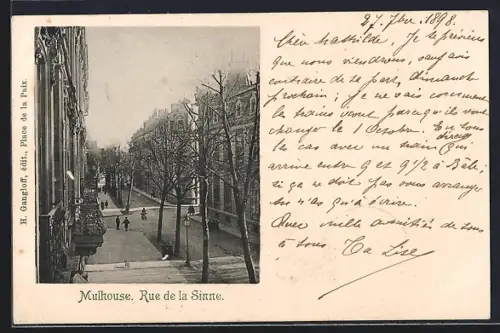 H. Gangloff, édit., Place de la Paix.
Mulhouse. Rue de la Sinne.
27. 7bre. 1898.
Chère Mathilde, Je te préviens
que nous viendrons, sauf avis
contraire de ta part, dimanche
prochain; je ne sais comment
les trains vont parcequ'ils vont
changer le 1 Octobre. En tous
les cas avec un train qui
direct
arrive entre 9 et 9 1/2 à Bâle;
si ça ne doit pas vous arranger
tu n'as qu'à écrire.
Avec mille amitiés de tous
à tous Ta Lise